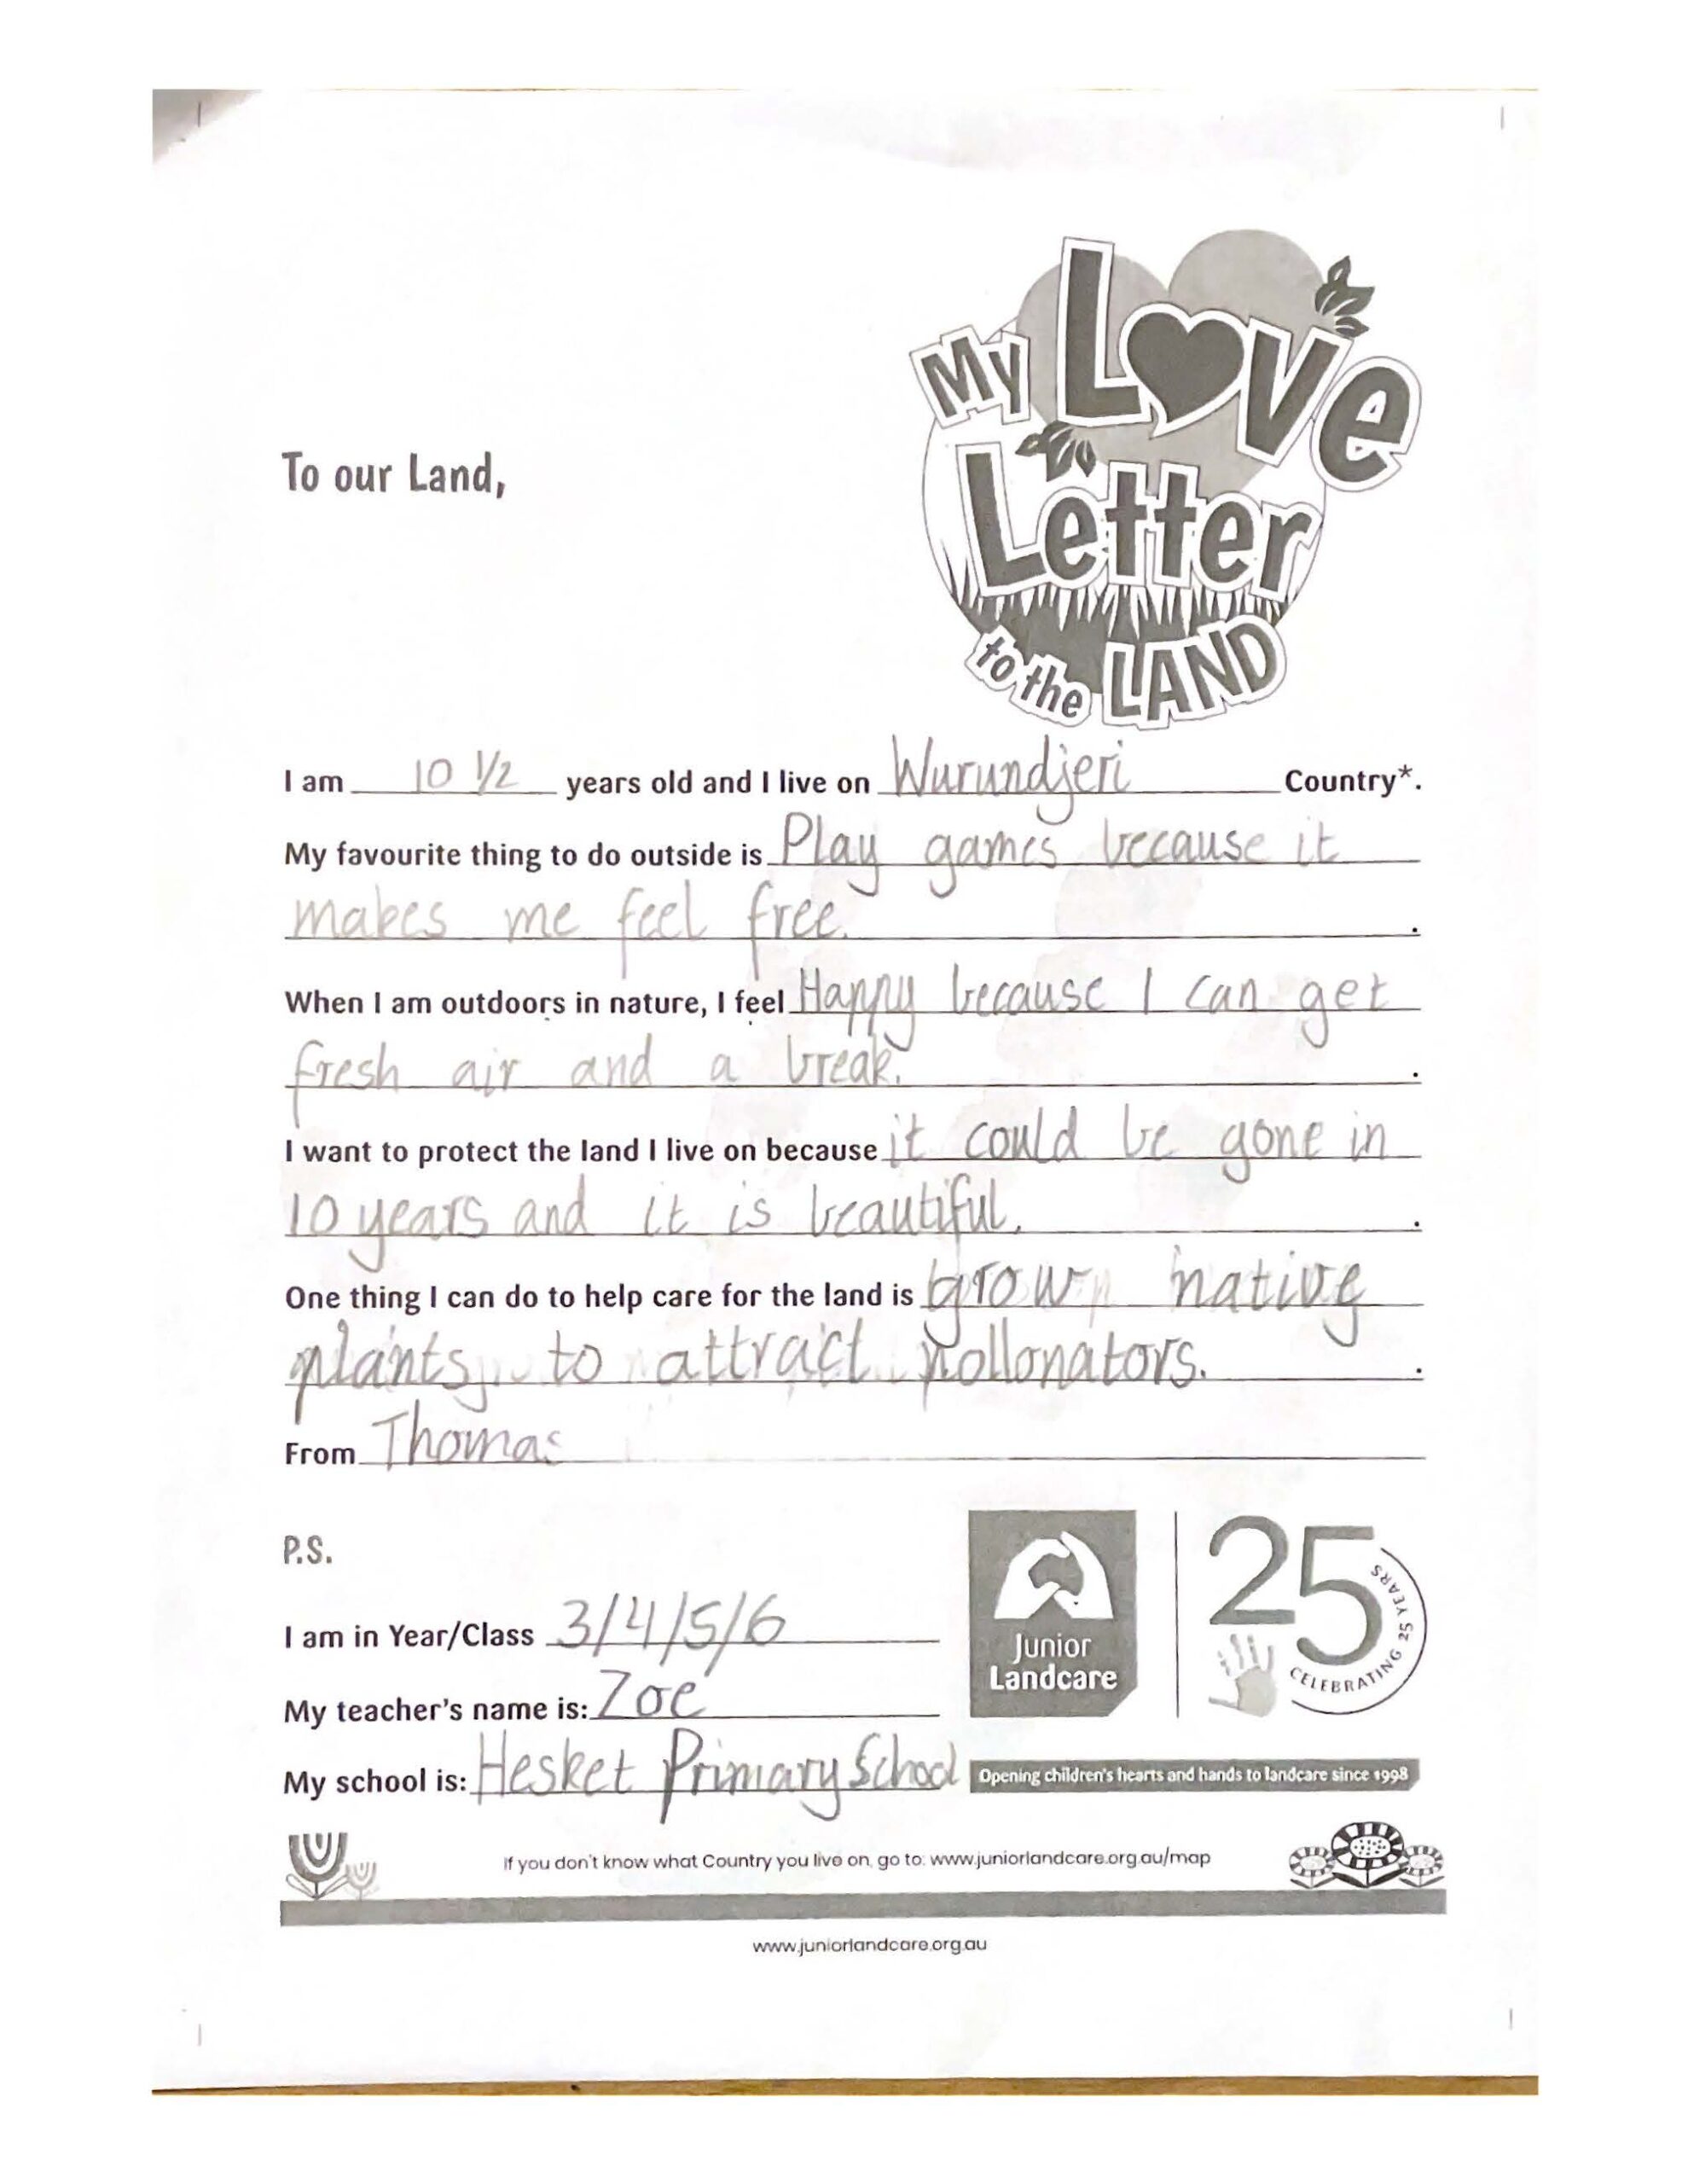 My Love
Letter
to the LAND
To our Land,
I am 10 1/2 years old and I live on Wurundjeri Country*.
My favourite thing to do outside is Play games because it
makes me feel free.
When I am outdoors in nature, I feel Happy because I can get
fresh air and a break.
I want to protect the land I live on because it could be gone in
10 years and it is beautiful.
One thing I can do to help care for the land is grow native
plants to attract pollonators.
From Thomas
P.S.
I am in Year/Class 3/4/5/6
My teacher's name is: Zoe
My school is: Hesket Primary School
Junior
Landcare
25
CELEBRATING 25 YEARS
Opening children's hearts and hands to landcare since 1998
If you don't know what Country you live on, go to: www.juniorlandcare.org.au/map
www.juniorlandcare.org.au